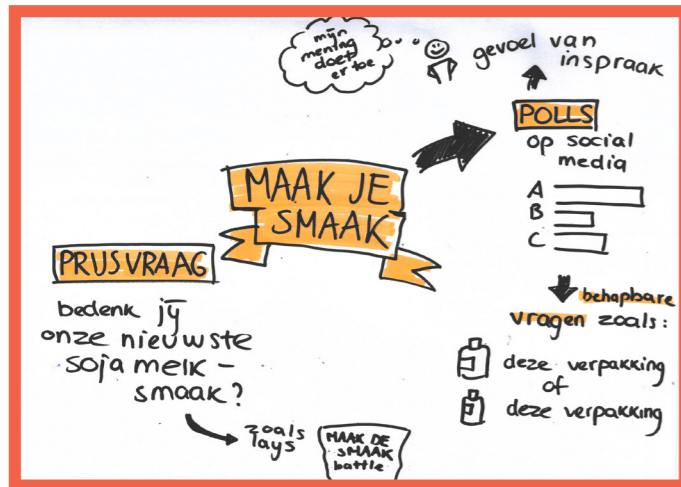 mijn
mening
doet
er toe
gevoel van
inspraak
POLLS
op social
media
A
B
C
behapbare
vragen zoals:
deze verpakking
of
deze verpakking
MAAK JE
SMAAK
PRIJSVRAAG
bedenk jij
onze nieuwste
soja melk –
smaak?
zoals
lays
MAAK DE
SMAAK
battle